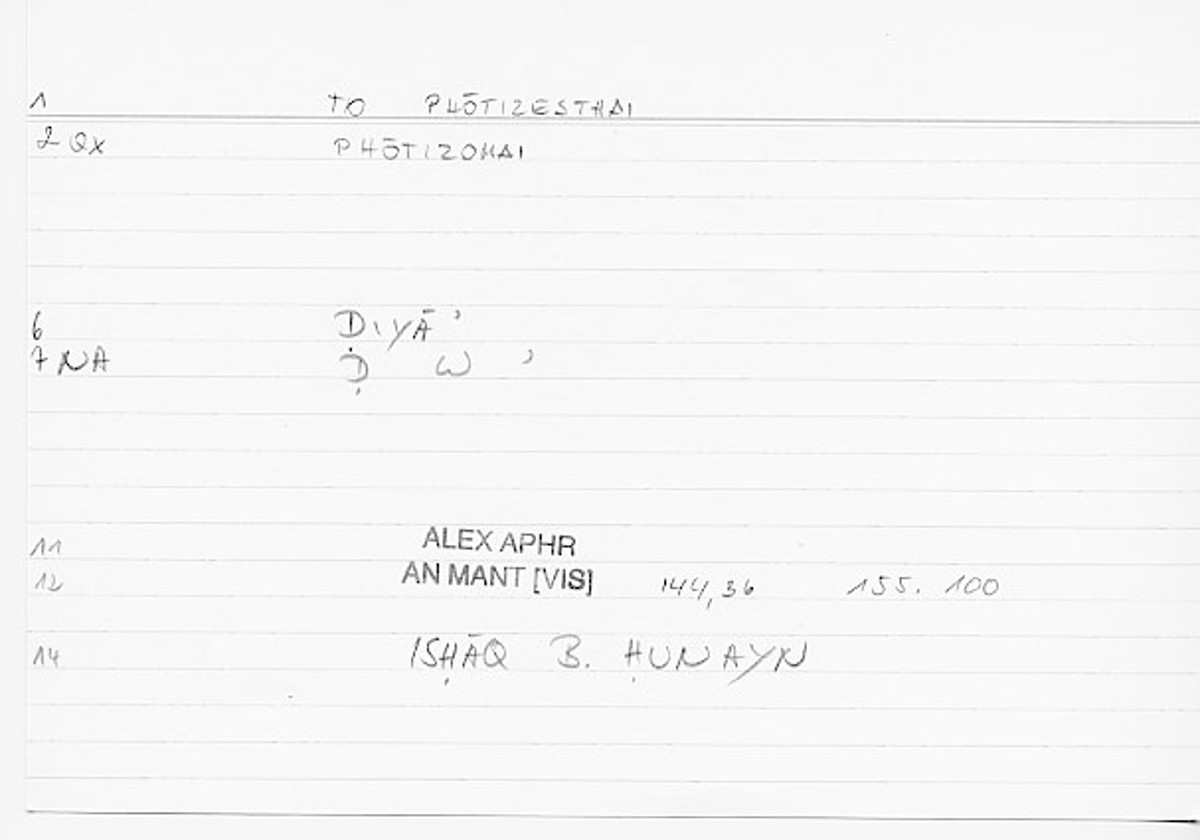 1 TO PHŌTIZESTHAI
2 QX PHŌTIZOMAI
6 ḌIYĀʾ
7 NA Ḍ W ʾ
11 ALEX APHR
12 AN MANT [VIS] 144,36 155. 100
14 ISḤĀQ B. ḤUNAYN